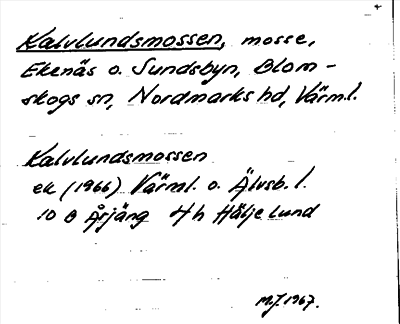 Kalvlundsmossen, mosse,
Ekenäs o. Sundsbyn, Blom-
skogs sn, Nordmarks hd, Värml.
Kalvlundsmossen
ek (1966) Värml. o. Älvsb. l.
10 B Årjäng 4h Häljelund
M.J. 1967.